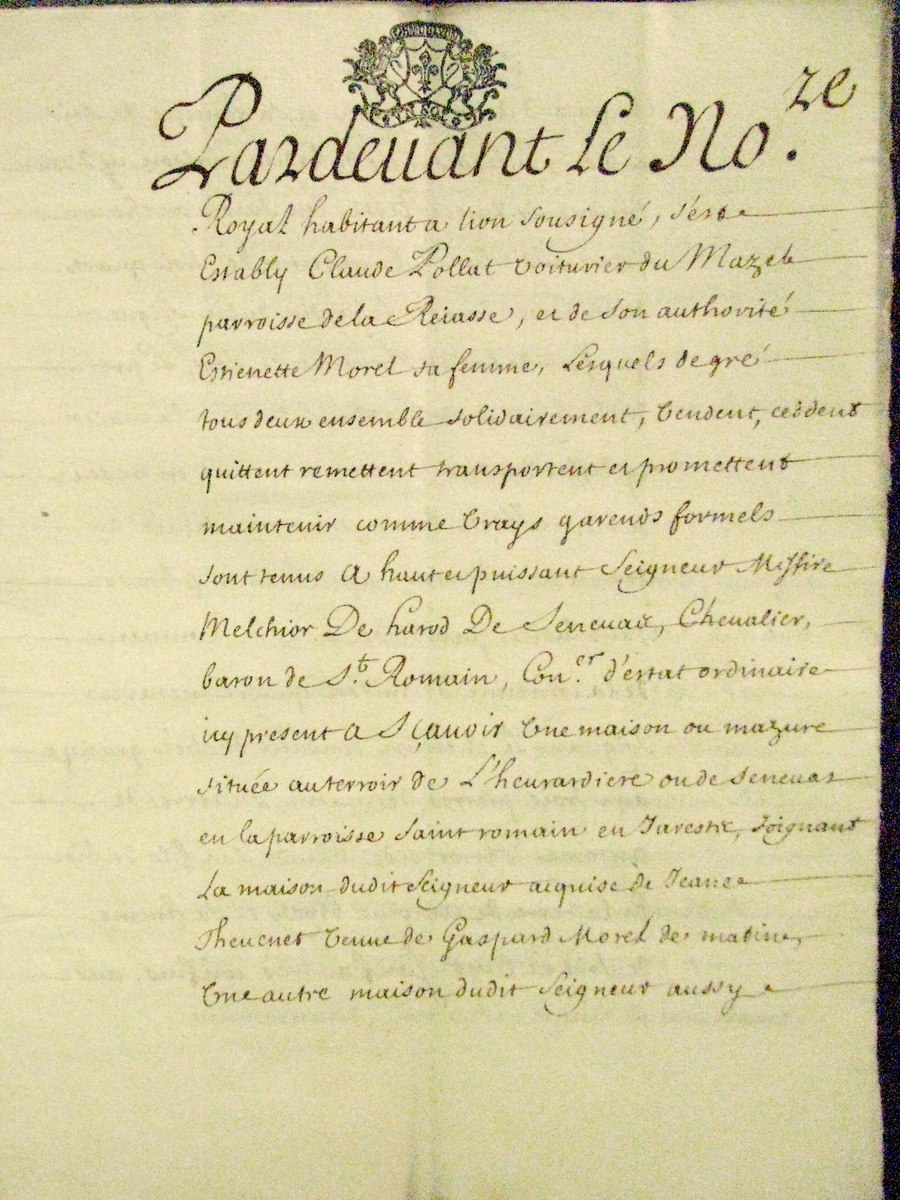 Pardevant Le No.re
Royal habitant a lion sousigné, s'est
Estably Claude Pollat voiturier du Mazel
parroisse de la Reiasse, et de son authorité
Estienette Morel sa femme, Lesquels de gré
tous deux ensemble solidairement, vendent, ceddent
quittent remettent transportent et promettent
maintenir comme vrays garends formels
sont tenus A haut et puissant Seigneur Messire
Melchior De harod De Senevas, Chevalier,
baron de St. Romain, Con.er d'estat ordinaire
icy present A Sçavoir Une maison ou mazure
située au terroir de L'heurardiere ou de senevas
en la parroisse saint romain en Jarestz, Joignant
La maison dudit Seigneur acquise de Jeane
Thevenet veuve de Gaspard Morel de matine,
Une autre maison dudit Seigneur aussy